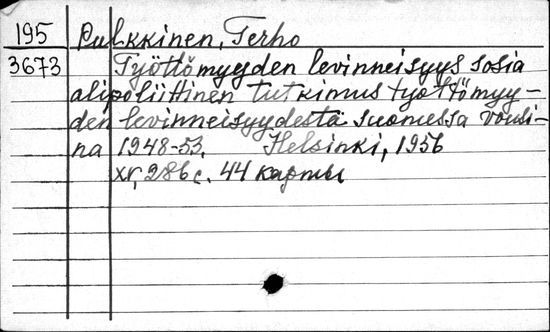 195 Pulkkinen, Terho
3673 Työttömyyden levinneisyys sosia
alipoliittinen tutkimus työttömyy-
den levinneisyydestä suomessa vousi-
na 1948-53. Helsinki, 1956
XV, 286 с. 44 карты